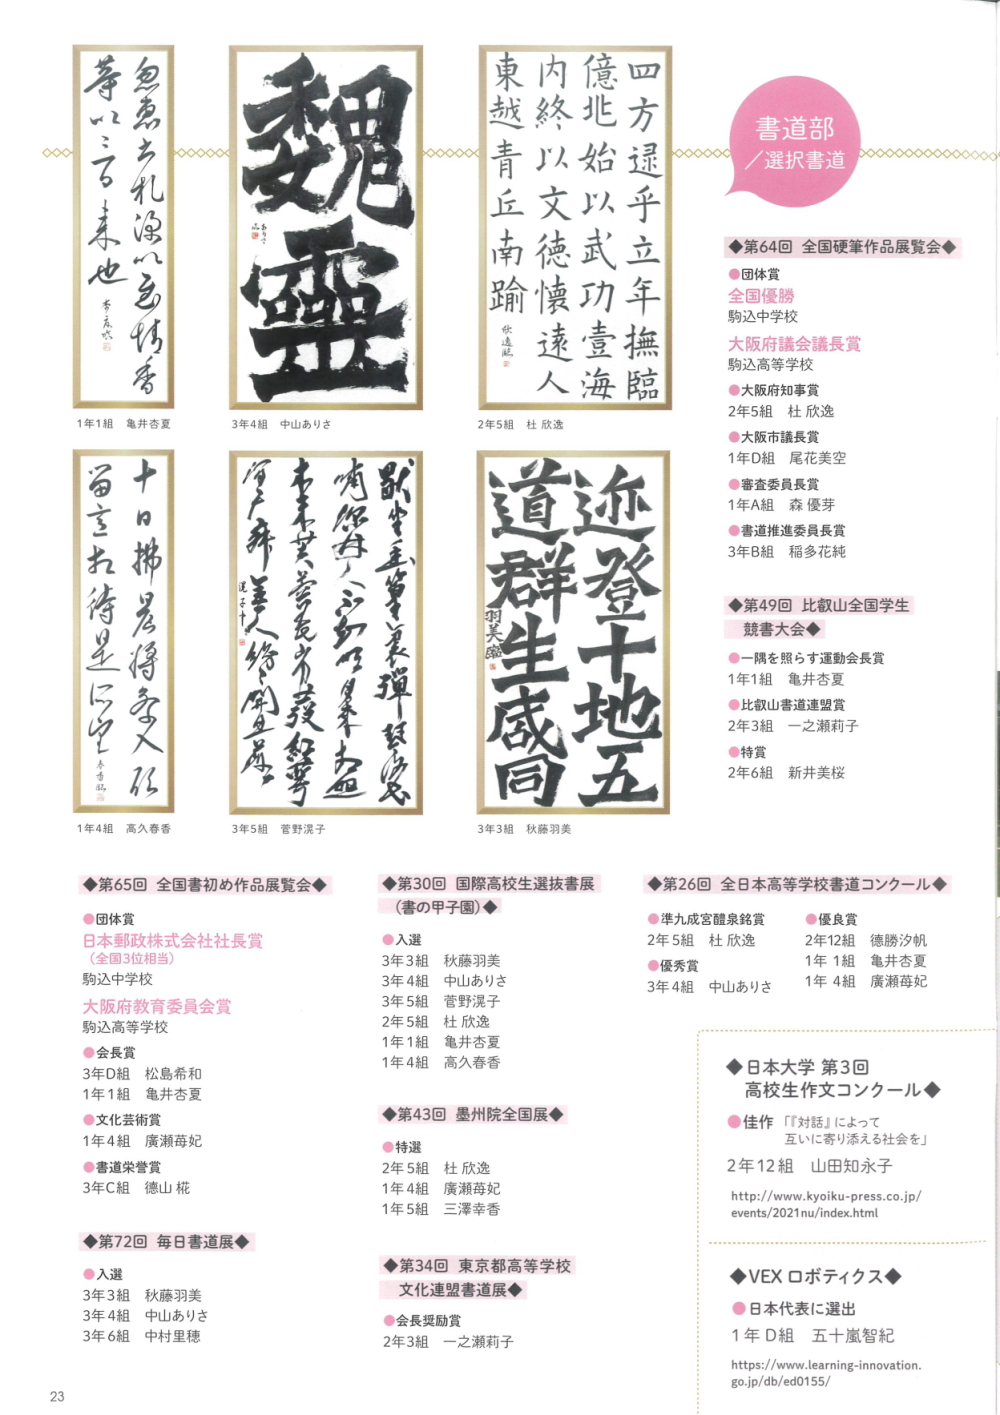 書道部
／選択書道
四方逯乎立年撫臨
億兆始以武功壹海
内終以文徳懐遠人
東越青丘南踰
魏
靈
迩登十地五
道群生咸同
羽美臨
1年1組 亀井杏夏
3年4組 中山ありさ
2年5組 杜 欣逸
1年4組 高久春香
3年5組 菅野滉子
3年3組 秋藤羽美
◆第64回 全国硬筆作品展覧会◆
●団体賞
全国優勝
駒込中学校
大阪府議会議長賞
駒込高等学校
●大阪府知事賞
2年5組 杜 欣逸
●大阪市議長賞
1年D組 尾花美空
●審査委員長賞
1年A組 森 優芽
●書道推進委員長賞
3年B組 稲多花純
◆第49回 比叡山全国学生
競書大会◆
●一隅を照らす運動会長賞
1年1組 亀井杏夏
●比叡山書道連盟賞
2年3組 一之瀬莉子
●特賞
2年6組 新井美桜
◆第65回 全国書初め作品展覧会◆
●団体賞
日本郵政株式会社社長賞
（全国3位相当）
駒込中学校
大阪府教育委員会賞
駒込高等学校
●会長賞
3年D組 松島希和
1年1組 亀井杏夏
●文化芸術賞
1年4組 廣瀬苺妃
●書道栄誉賞
3年C組 德山 椛
◆第72回 毎日書道展◆
●入選
3年3組 秋藤羽美
3年4組 中山ありさ
3年6組 中村里穂
◆第30回 国際高校生選抜書展
（書の甲子園）◆
●入選
3年3組 秋藤羽美
3年4組 中山ありさ
3年5組 菅野滉子
2年5組 杜 欣逸
1年1組 亀井杏夏
1年4組 高久春香
◆第43回 墨州院全国展◆
●特選
2年5組 杜 欣逸
1年4組 廣瀬苺妃
1年5組 三澤幸香
◆第34回 東京都高等学校
文化連盟書道展◆
●会長奨励賞
2年3組 一之瀬莉子
◆第26回 全日本高等学校書道コンクール◆
●準九成宮醴泉銘賞
2年5組 杜 欣逸
●優秀賞
3年4組 中山ありさ
●優良賞
2年12組 德勝汐帆
1年 1組 亀井杏夏
1年 4組 廣瀬苺妃
◆日本大学 第3回
高校生作文コンクール◆
●佳作 「『対話』によって
互いに寄り添える社会を」
2年12組 山田知永子
http://www.kyoiku-press.co.jp/
events/2021nu/index.html
◆VEX ロボティクス◆
●日本代表に選出
1年D組 五十嵐智紀
https://www.learning-innovation.
go.jp/db/ed0155/
23